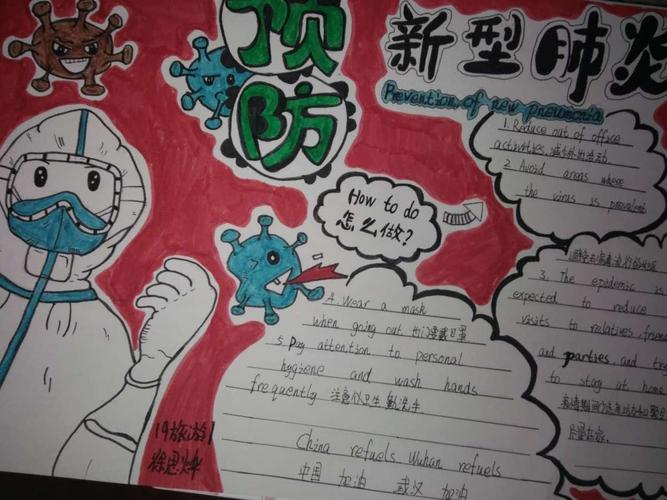 预防
新型肺炎
Prevention of new pneumonia
1. Reduce out of office
activities,减少外出活动
2. Avoid areas where
the virus is prevalent
3. The epidemic is
expected to reduce
visits to relatives, friend
and parties and try
to stay at home
尽量在家.
How to do
怎么做?
4. Wear a mask
when going out 出门要戴口罩
5. Pay attention to personal
hygiene and wash hands
frequently 注意 卫生 勤洗手
China refuels Wuhan refuels
中国 加油 武汉 加油
19旅游1
徐思